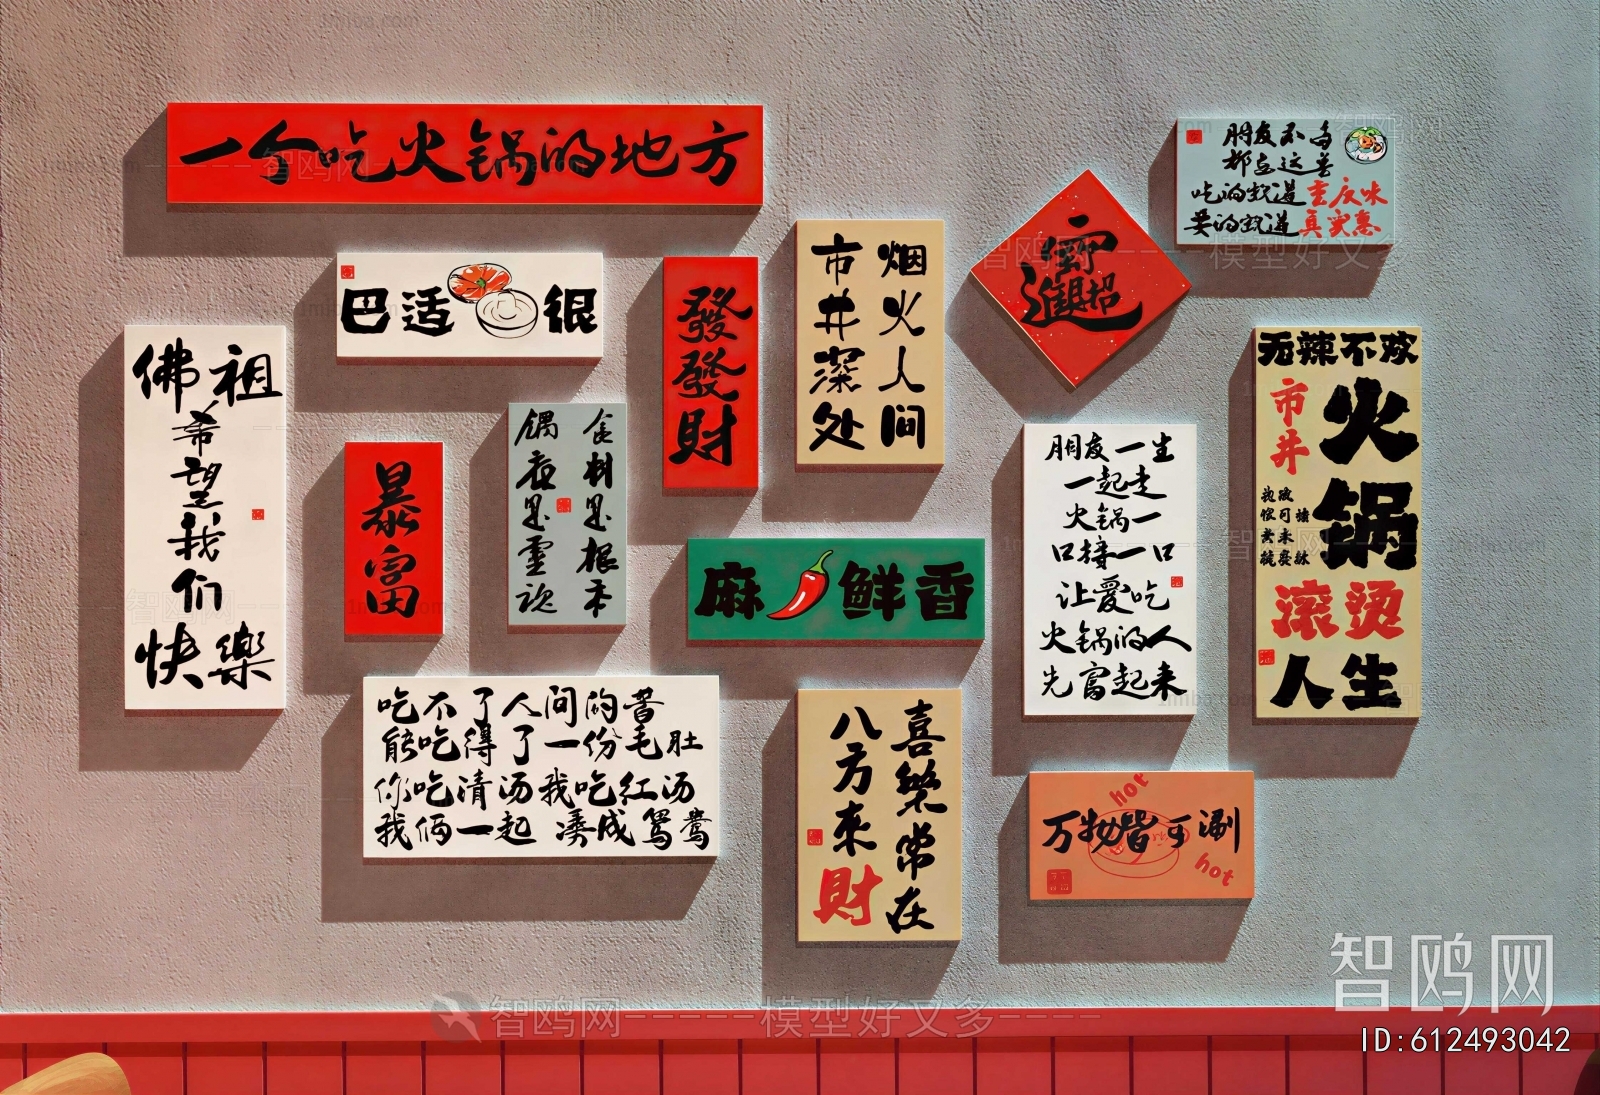 一个吃火锅的地方
朋友不多
都在这着
吃的就是重庆味
要的就是真实惠
巴适很
發發財
烟火人间
市井深处
招财进寶
佛祖
希望我们
快樂
暴富
食料是根本
锅底是靈魂
无辣不欢
市井
火锅
滚烫
人生
朋友一生
一起走
火锅一
口接一口
让爱吃
火锅的人
先富起来
麻鲜香
吃不了人间的苦
能吃得了一份毛肚
你吃清汤我吃红汤
我俩一起 凑成鸳鸯
喜樂常在
八方来財
hot
万物皆可涮
hot
智鸥网-----模型好又多----
智鸥网
ID:612493042